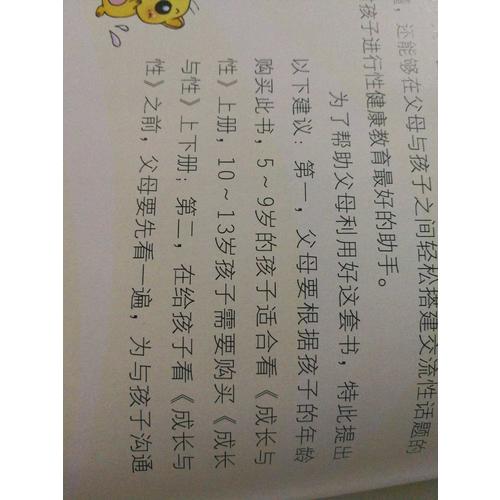 ，还能够在父母与孩子之间轻松搭建交流性话题的
孩子进行性健康教育最好的助手。
为了帮助父母利用好这套书，特此提出
以下建议：第一，父母要根据孩子的年龄
购买此书，5～9岁的孩子适合看《成长与
性》上册，10～13岁孩子需要购买《成长
与性》上下册；第二，在给孩子看《成长与
性》之前，父母要先看一遍，为与孩子沟通